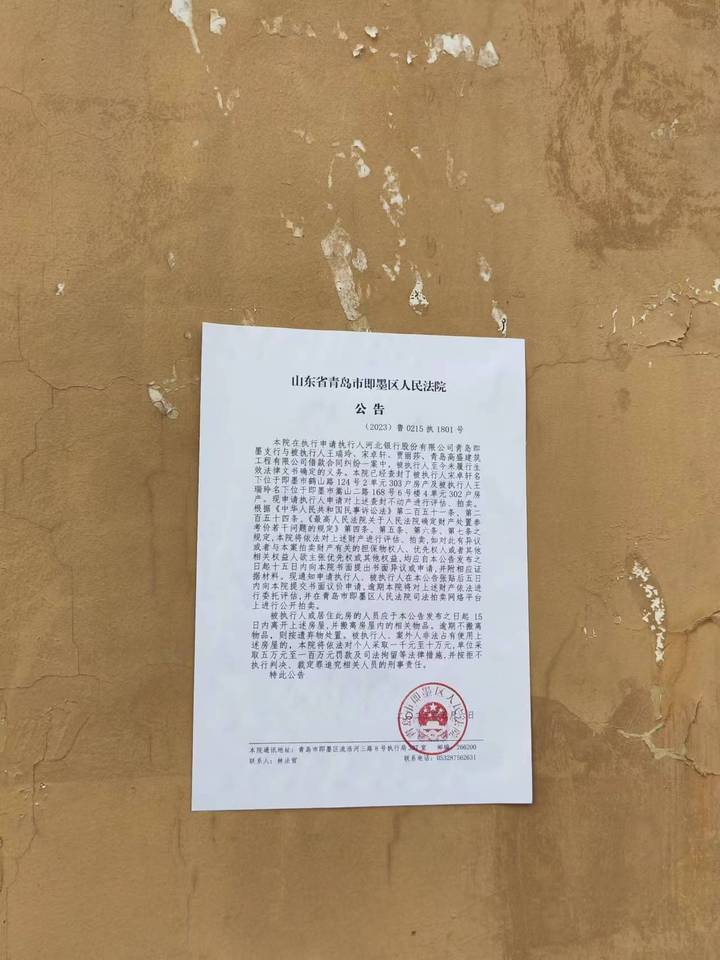 山东省青岛市即墨区人民法院
公告
（2023）鲁 0215 执 1801 号
本院在执行申请执行人河北银行股份有限公司青岛即
墨支行与被执行人王瑞玲、宋卓轩、贾丽莎、青岛高盛建筑
工程有限公司借款合同纠纷一案中，被执行人至今未履行生
效法律文书确定的义务。本院已经查封了被执行人宋卓轩名
下位于即墨市鹤山路 124 号 2 单元 303 户房产及被执行人王
瑞玲名下位于即墨市嵩山二路 168 号 6 号楼 4 单元 302 户房
产。现申请执行人申请对上述查封不动产进行评估、拍卖。
根据《中华人民共和国民事诉讼法》第二百五十一条、第二
百五十四条、《最高人民法院关于人民法院确定财产处置参
考价若干问题的规定》第四条、第五条、第六条、第七条之
规定，本院将依法对上述财产进行评估、拍卖，如对此有异议
或者与本案拍卖财产有关的担保物权人、优先权人或者其他
相关权益人欲主张优先权或其他权益，均应自本公告发布之
日起十五日内向本院书面提出书面异议或申请，并附相应证
据材料。现通知申请执行人、被执行人在本公告张贴后五日
内向本院提交书面议价申请，逾期本院将对上述财产依法进
行委托评估，并在青岛市即墨区人民法院司法拍卖网络平台
上进行公开拍卖。
被执行人或居住此房的人员应于本公告发布之日起 15
日内离开上述房屋，并搬离房屋内的相关物品。逾期不搬离
物品，则按遗弃物处置。被执行人、案外人非法占有使用上
述房屋的，本院将依法对个人采取一千元至十万元，单位采
取五万元至一百万元罚款及司法拘留等法律措施，并按拒不
执行判决、裁定罪追究相关人员的刑事责任。
特此公告
日
青岛市即墨区人民法院
本院通讯地址：青岛市即墨区流浩河三路 6 号执行局 室 邮编 266200
联系人：林法官 联系电话：053287562631